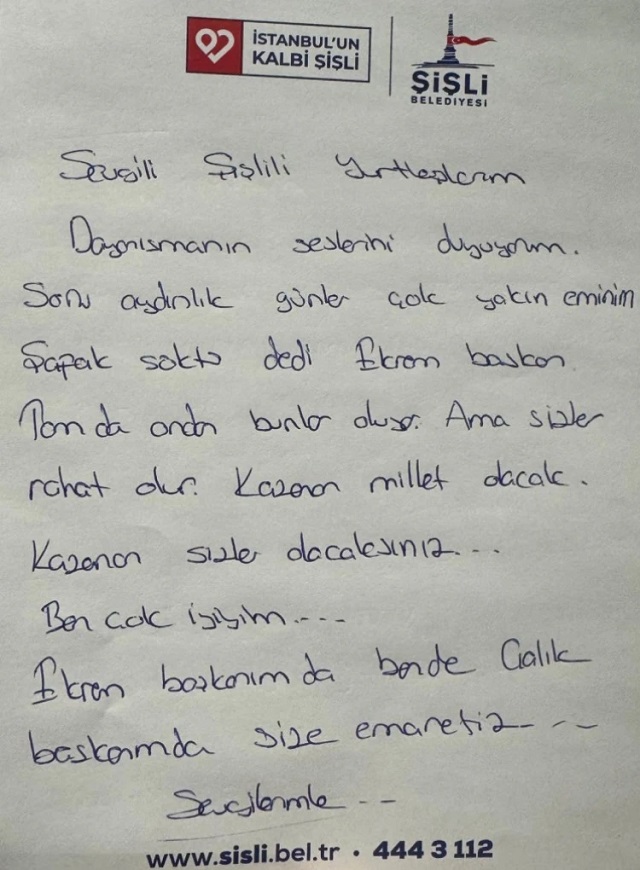 İSTANBUL'UN
KALBİ ŞİŞLİ
ŞİŞLİ
BELEDİYESİ
Sevgili Şişlili Yurttaşlarım
Dayanışmanın seslerini duyuyorum.
Sonu aydınlık günler çok yakın eminim
Şafak söktü dedi Ekrem başkan.
Tam da ondan bunlar oluyor. Ama sizler
rahat olun. Kazanan millet olacak.
Kazanan sizler olacaksınız...
Ben çok iyiyim....
Ekrem başkanım da bende Çalık
başkanımda size emanetiz...
Sevgilerimle...
www.sisli.bel.tr • 444 3 112